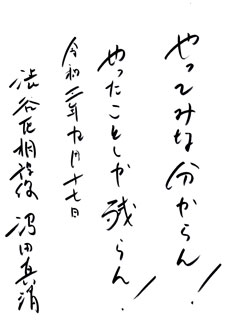 やってみな分からん！
やったことしか残らん！
令和 年九月十七日
渋谷 相談役